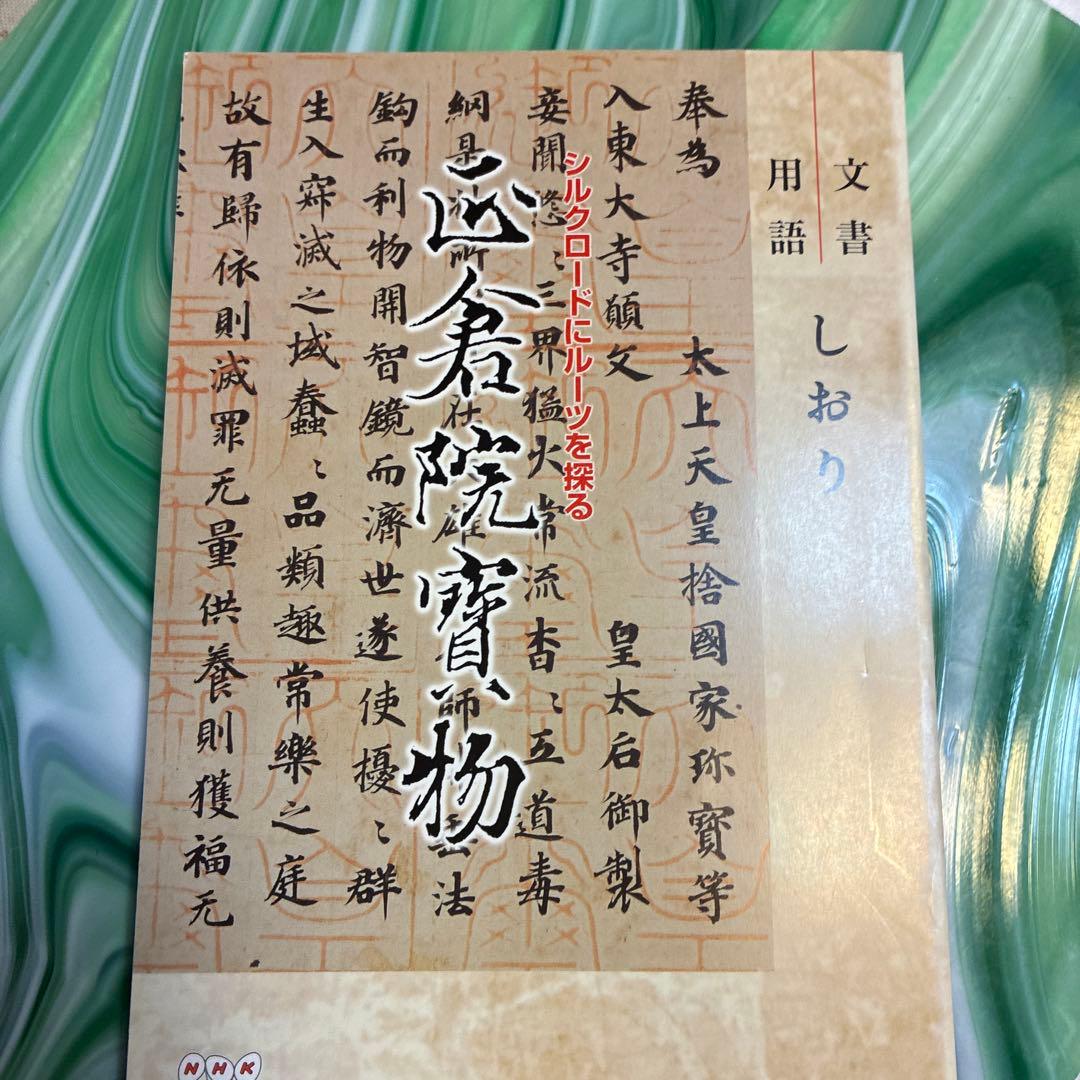 文書
用語
しおり
シルクロードにルーツを探る
正倉院寳物
奉為
太上天皇捨國家珎寶等
入東大寺願文
皇太后御製
妾聞悠〻三界猛火常流杳〻五道毒
網是
雄
師
法
鈎而利物開智鏡而濟世遂使擾〻群
生入寂滅之域蠢〻品類趣常樂之庭
故有歸依則滅罪无量供養則獲福无
NHK